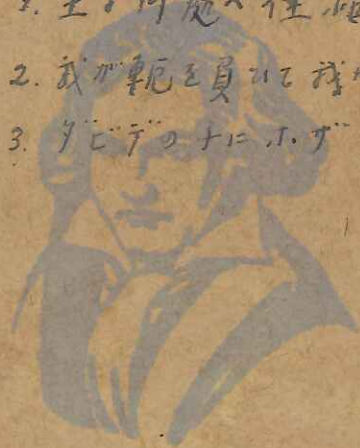 1. 主よ何處へ往
2. 我が軛を負ひて我
3. ダビデの子にホザ